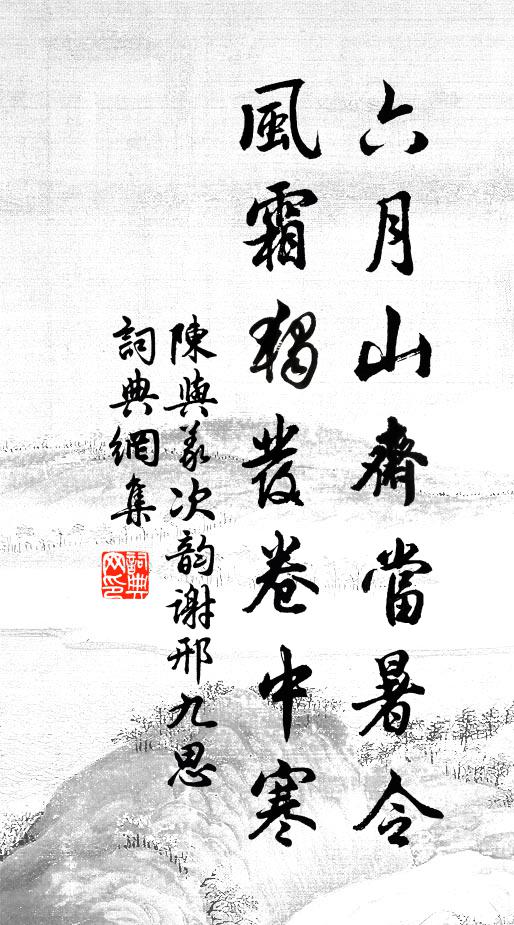 六月山齋當暑令
風霜獨發卷中寒
陳與義次韵謝邢九思
詞典網集
詞典
网印